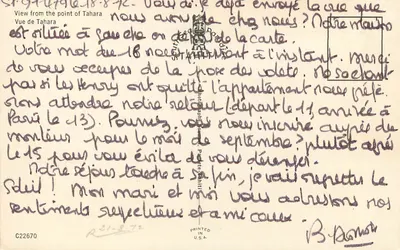 18-8-72 Vous ai-je déjà envoyé la vue que
View from the point of Tahara
Vue de Tahara
nous avons de chez nous? Notre maison
est située à gauche en de la carte.
Votre mot du 16 nous à l'instant. Merci
de vous occuper de la pose des volets. Ne sachant
pas si les Henry ont quitté l'appartement nous préfé-
rons attendre notre retour (départ le 11, arrivée à
Paris le 13). Pourrez-vous nous inscrire auprès du
monteur pour le mois de septembre? plutôt après
le 15 pour vous éviter de vous déranger.
Notre séjour touche à sa fin, je vais regretter le
Soleil! Mon mari et moi vous adressons nos
sentiments respectueux et amicaux.
C22670
PRINTED IN U.S.A.